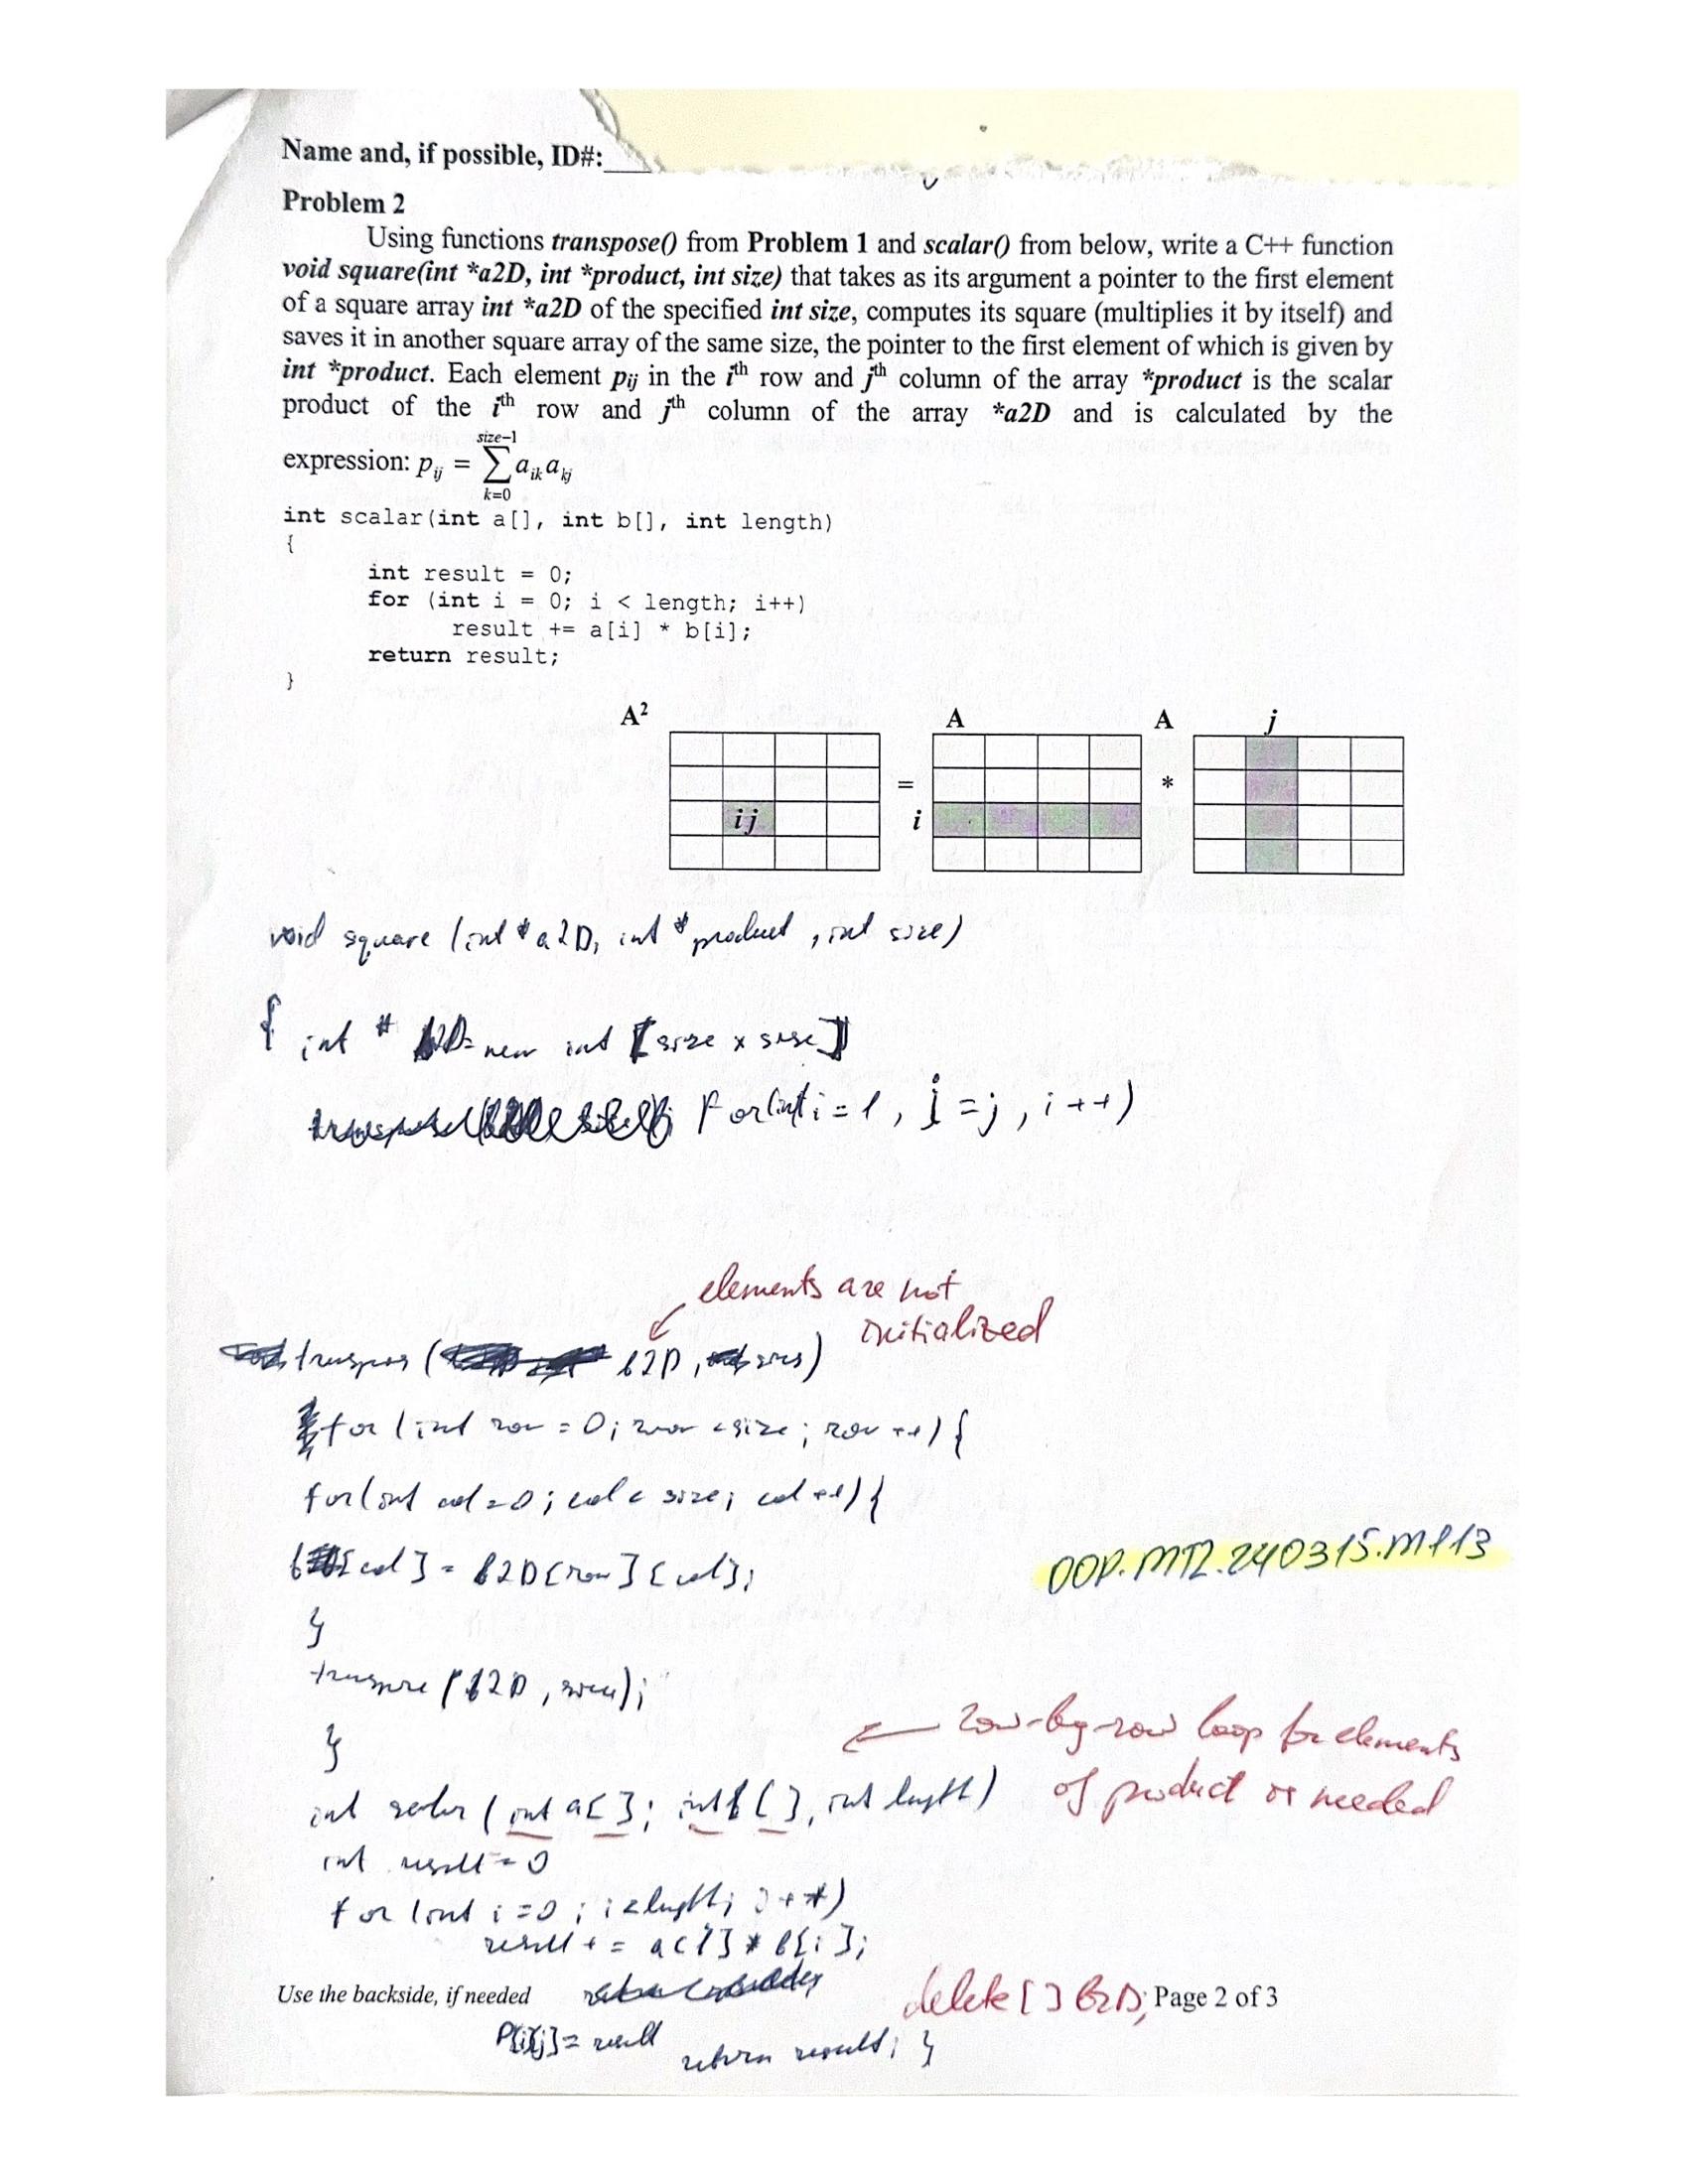 Name and, if possible, ID#:
Problem 2
Using functions transpose() from Problem 1 and scalar() from below, write a C++ function
void square(int *a2D, int *product, int size) that takes as its argument a pointer to the first element
of a square array int *a2D of the specified int size, computes its square (multiplies it by itself) and
saves it in another square array of the same size, the pointer to the first element of which is given by
int *product. Each element pij in the ith row and jth column of the array *product is the scalar
product of the ith row and jth column of the array *a2D and is calculated by the
size-1
expression: pij = ∑ aik akj
k=0
int scalar(int a[], int b[], int length)
{
int result = 0;
for (int i = 0; i < length; i++)
result += a[i] * b[i];
return result;
}
A² A A j
= *
ij i
void square (int * a2D, int * product, int size)
{ int * b2D= new int [size x size]
for(int i = 1, i = j, i++)
elements are not
initialized
transpos ( b2D, size)
for (int row = 0; row < size; row ++) {
for(int col = 0; col < size; col ++) {
[col] = b2D[row][col];
}
transpose (b2D, size);
}
row-by-row loop for elements
of product is needed
int scalar (int a[ ]; int b [ ], int length)
int result = 0
for (int i = 0; i < length; i++)
result + = a[i] * b[i];
OOP.MT2.240315.M113
Use the backside, if needed
delete [ ] b2D;
Page 2 of 3
P[i][j] = result
return result; }